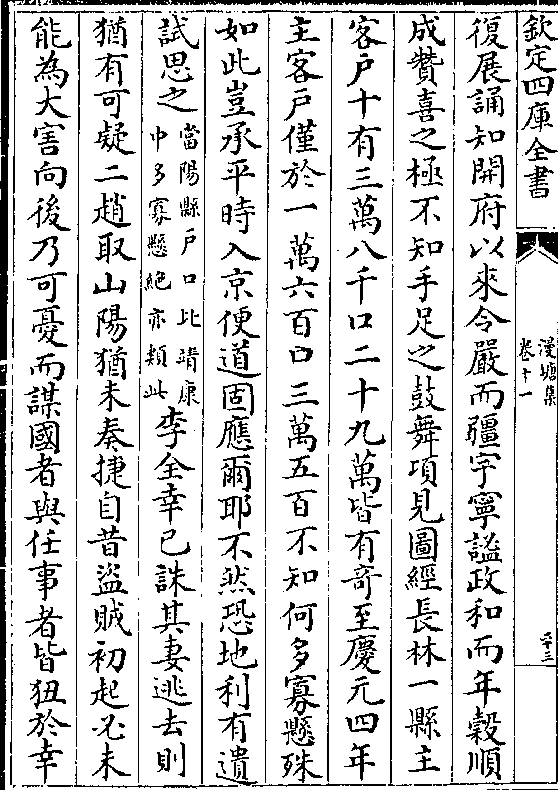 欽定四庫全書
漫塘集
卷十一
復展誦知開府以來令嚴而疆宇寧謐政和而年穀順
成贊喜之極不知手足之鼓舞項見圖經長林一縣主
客戶十有三萬八千口二十九萬皆有奇至慶元四年
主客戶僅於一萬六百口三萬五百不知何多寡懸殊
如此豈承平時入京便道固應爾耶不然恐地利有遺
試思之當陽縣戶口比靖康
中多寡懸絕亦類此李全幸已誅其妻逃去則
猶有可疑二趙取山陽猶未奏捷自昔盜賊初起必未
能為大害向後乃可憂而謀國者與任事者皆狃於幸